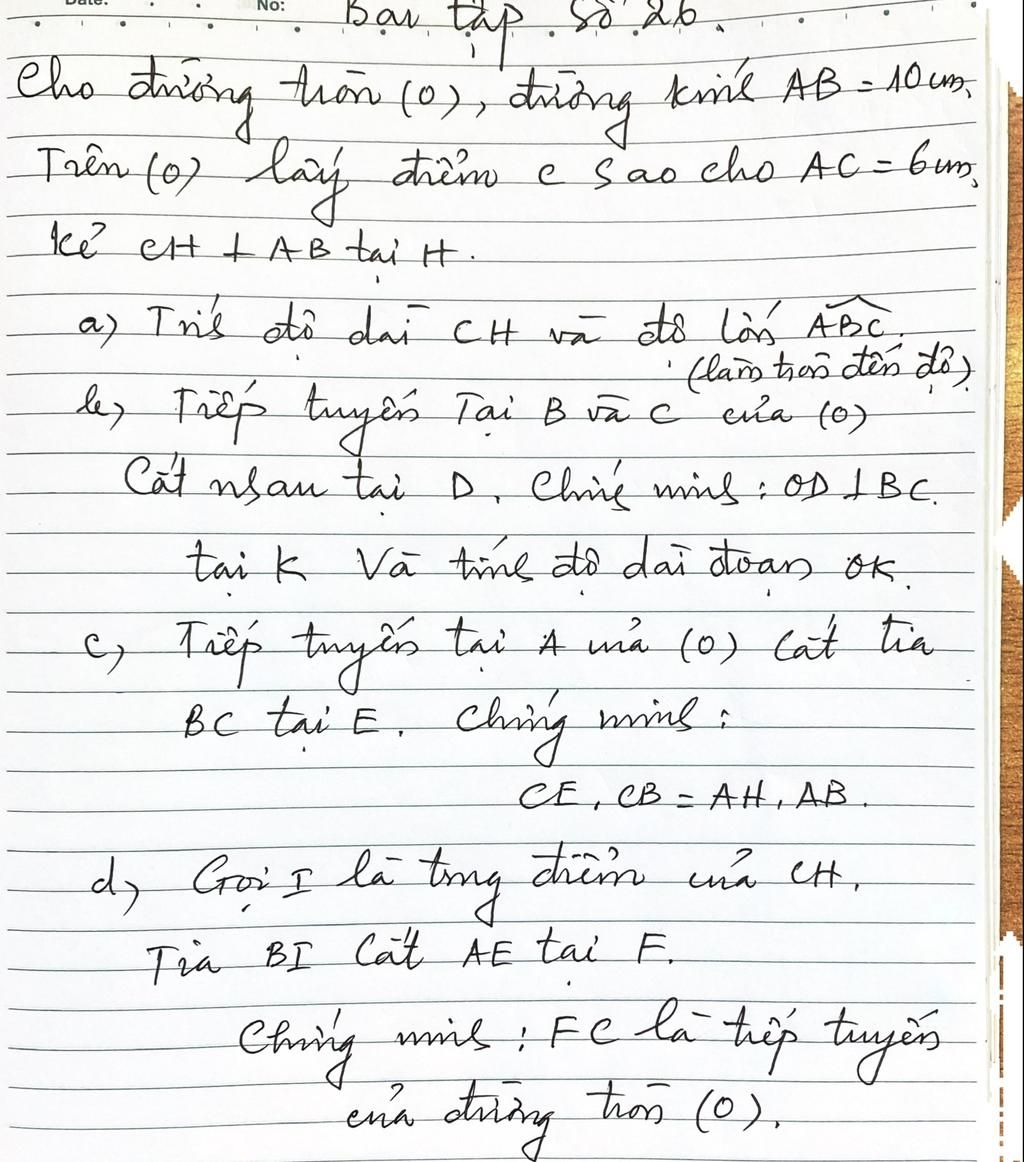 Date: No:
Bài tập số 26.
Cho đường tròn (O), đường kính AB = 10 cm.
Trên (O) lấy điểm C sao cho AC = 6 cm.
kẻ CH ⊥ AB tại H.
a) Tính độ dài CH và độ lớn \widehat{ABC}.
(làm tròn đến độ)
b) Tiếp tuyến Tại B và C của (O)
Cắt nhau tại D. Chứng minh : OD ⊥ BC.
tại K Và tính độ dài đoạn OK.
c) Tiếp tuyến tại A của (O) Cắt tia
BC tại E. Chứng minh :
CE . CB = AH . AB.
d) Gọi I là trung điểm của CH.
Tia BI Cắt AE tại F.
Chứng minh : FC là tiếp tuyến
của đường tròn (O).